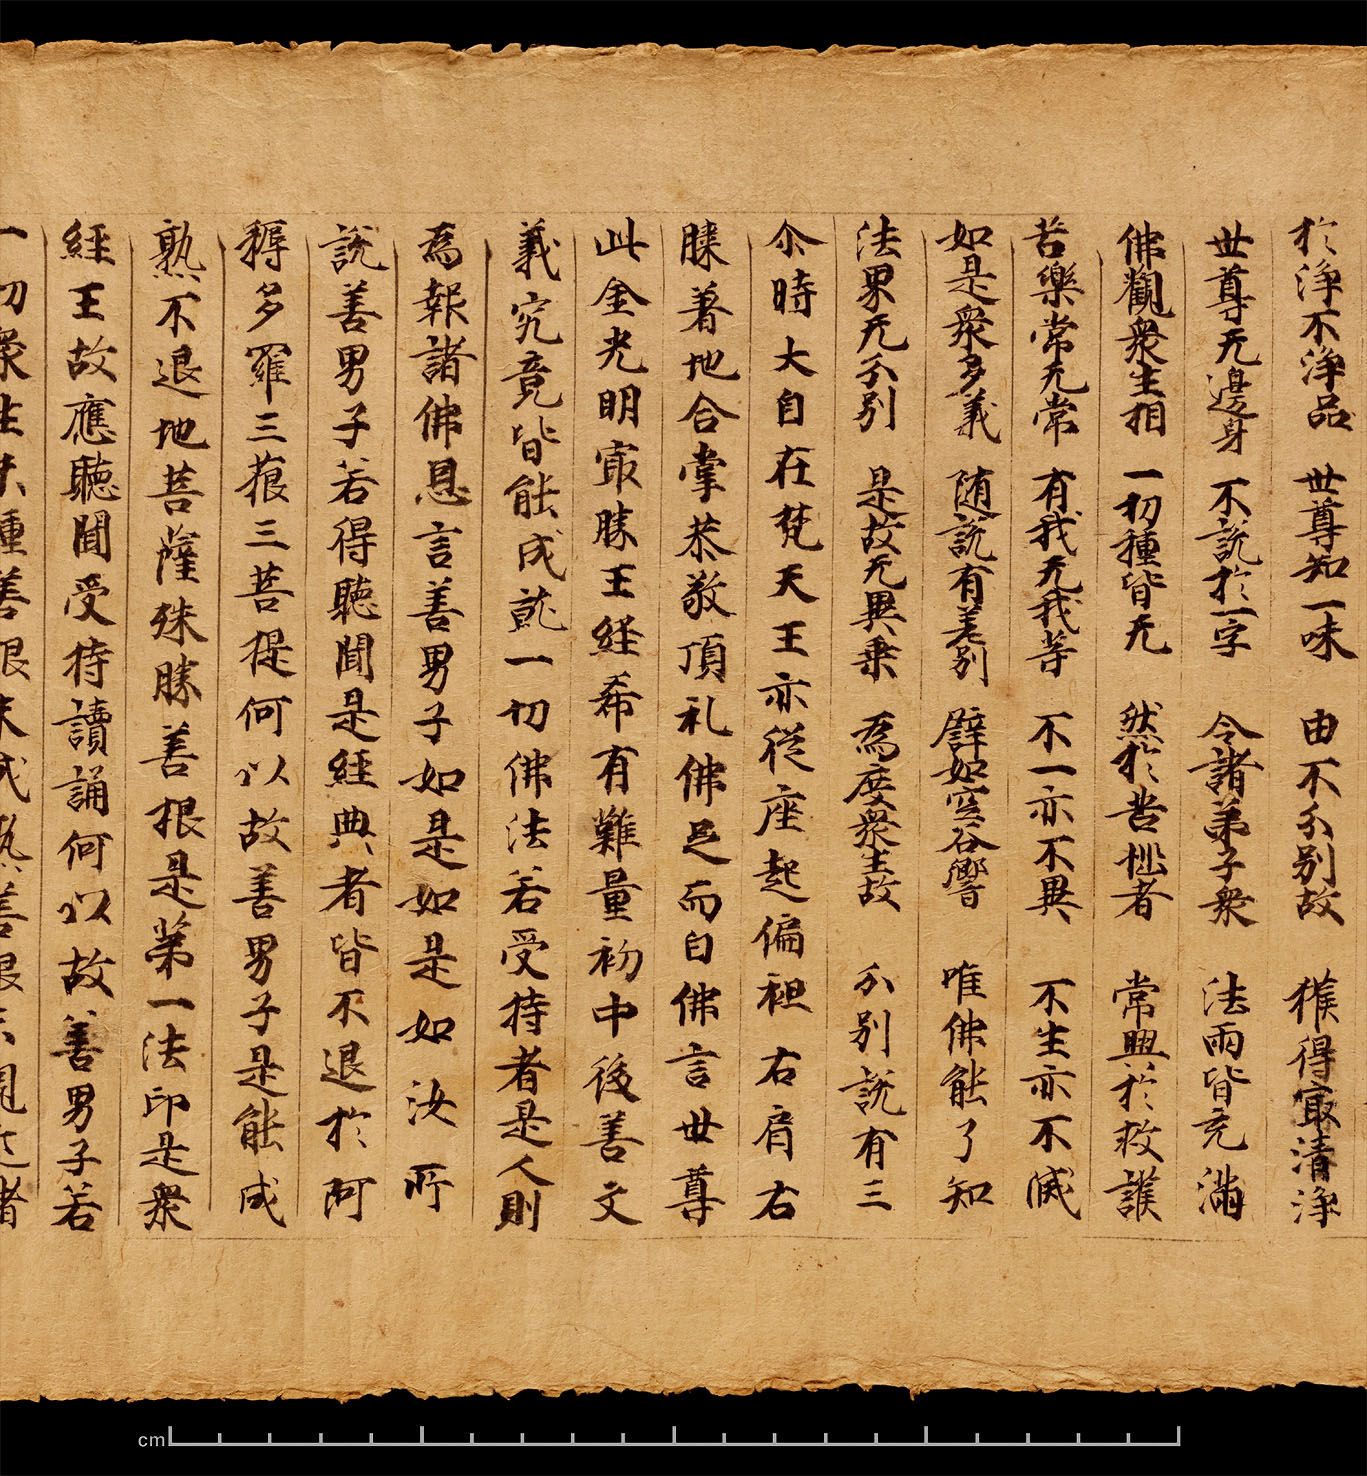 於淨不淨品 世尊知一味 由不分別故 獲得㝡清淨
世尊无邊身 不說於一字 令諸弟子衆 法雨皆充滿
佛觀衆生相 一切種皆无 然於苦惱者 常興於救護
苦樂常无常 有我无我等 不一亦不異 不生亦不滅
如是衆多義 隨說有差別 譬如空谷響 唯佛能了知
法界无分別 是故无異乘 爲度衆生故 分別說有三
尒時大自在梵天王亦從座起偏袒右肩右
膝著地合掌恭敬頂礼佛足而白佛言世尊
此金光明㝡勝王經希有難量初中後善文
義究竟皆能成就一切佛法若受持者是人則
爲報諸佛恩言善男子如是如是如汝所
說善男子若得聽聞是經典者皆不退於阿
耨多羅三藐三菩提何以故善男子是能成
熟不退地菩薩殊勝善根是第一法印是衆
經王故應聽聞受持讀誦何以故善男子若
一切衆生未種善根未成熟善根未親近諸